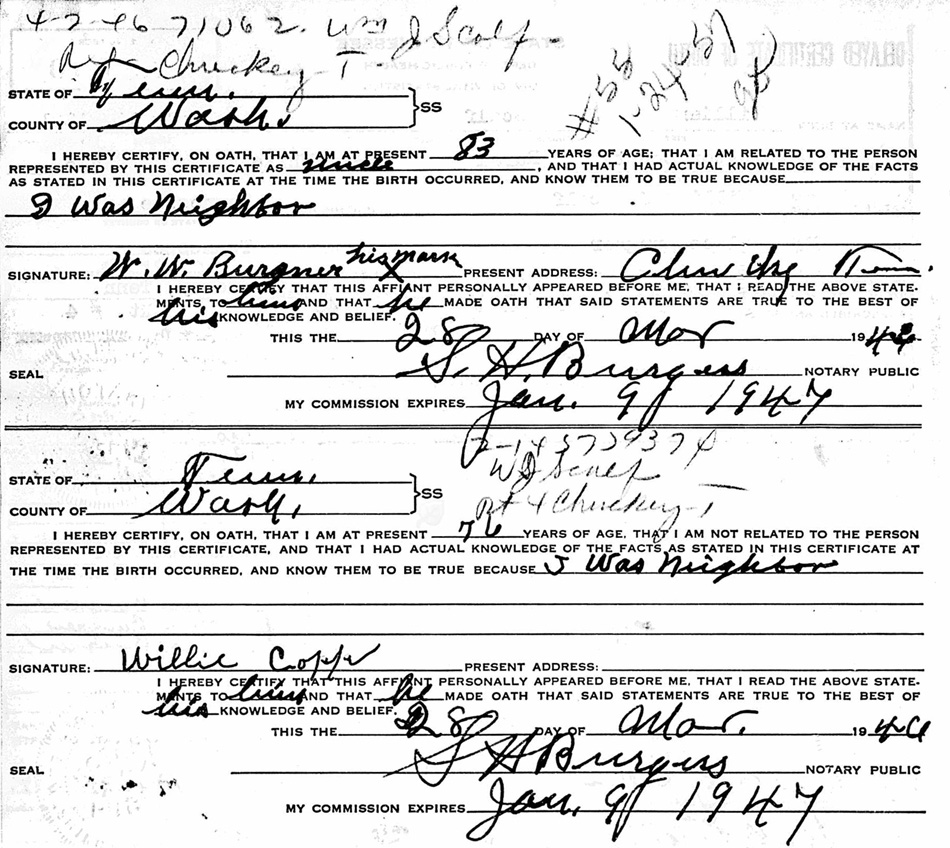 4-2-46-71062. Wm J Scalf-
Chuckey-T
#55
1-24-51
STATE OF Tenn.
COUNTY OF Wash.
SS
I HEREBY CERTIFY, ON OATH, THAT I AM AT PRESENT 83 YEARS OF AGE; THAT I AM RELATED TO THE PERSON
REPRESENTED BY THIS CERTIFICATE AS Uncle, AND THAT I HAD ACTUAL KNOWLEDGE OF THE FACTS
AS STATED IN THIS CERTIFICATE AT THE TIME THE BIRTH OCCURRED, AND KNOW THEM TO BE TRUE BECAUSE
I Was Neighbor
SIGNATURE: W. W. Burgner his mark X PRESENT ADDRESS: Chuckey Tenn.
I HEREBY CERTIFY THAT THIS AFFIANT PERSONALLY APPEARED BEFORE ME, THAT I READ THE ABOVE STATE-
MENTS TO him AND THAT he MADE OATH THAT SAID STATEMENTS ARE TRUE TO THE BEST OF
his KNOWLEDGE AND BELIEF.
THIS THE 28 DAY OF Mar 1946
SEAL S. H. Burgess NOTARY PUBLIC
MY COMMISSION EXPIRES Jan. 9 1947
WJ Scalf
Rt 4 Chuckey-T
STATE OF Tenn.
COUNTY OF Wash.
SS
I HEREBY CERTIFY, ON OATH, THAT I AM AT PRESENT 76 YEARS OF AGE, THAT I AM NOT RELATED TO THE PERSON
REPRESENTED BY THIS CERTIFICATE, AND THAT I HAD ACTUAL KNOWLEDGE OF THE FACTS AS STATED IN THIS CERTIFICATE AT
THE TIME THE BIRTH OCCURRED, AND KNOW THEM TO BE TRUE BECAUSE I Was Neighbor
SIGNATURE: Willie Copp PRESENT ADDRESS:
I HEREBY CERTIFY THAT THIS AFFIANT PERSONALLY APPEARED BEFORE ME, THAT I READ THE ABOVE STATE-
MENTS TO him AND THAT he MADE OATH THAT SAID STATEMENTS ARE TRUE TO THE BEST OF
his KNOWLEDGE AND BELIEF.
THIS THE 28 DAY OF Mar. 1946
SEAL S H Burgess NOTARY PUBLIC
MY COMMISSION EXPIRES Jan. 9 1947